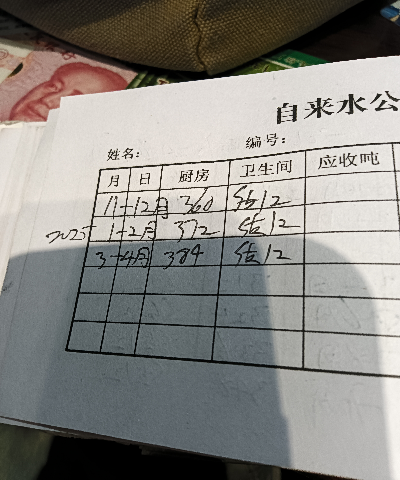 自来水公
姓名： 编号：
月 日 厨房 卫生间 应收吨
11-12月 360 估12
2025 1-2月 372 估12
3-4月 384 估12